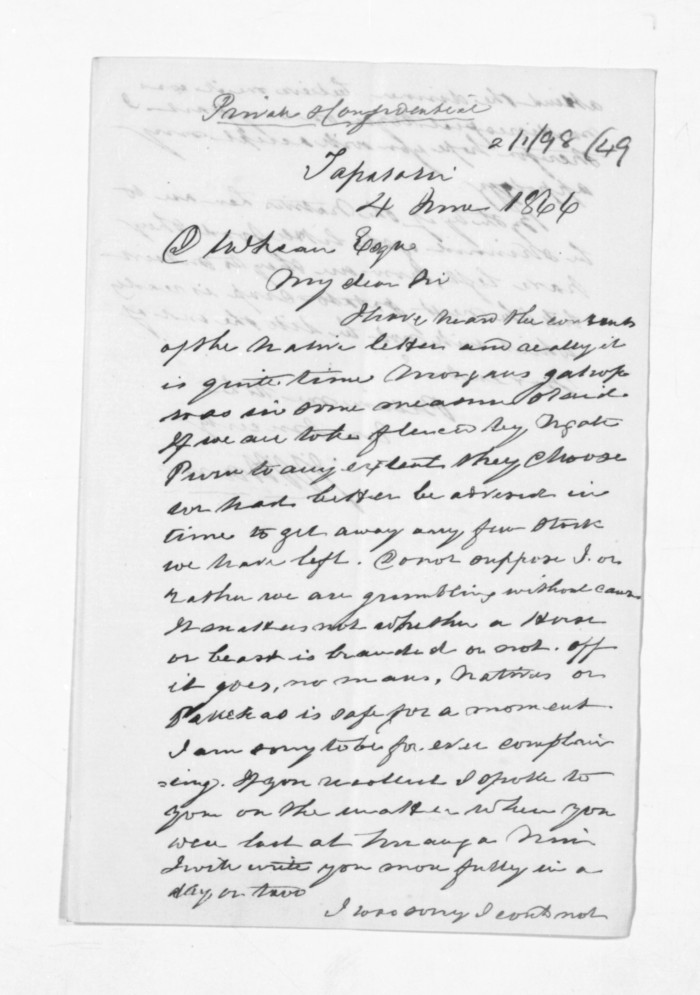 Private & Confidential
2/1/98 (49
4 June 1866
D McLean Esqre
My dear Sir
I have heard the contents
of the Native letter and really it
is quite time Morgans gallop
was in some measure staid.
If we are to be fleeced by Ngati
Puru to any extent they choose
we had better be advised in
time to get away any few stock
we have left. Do not suppose I or
rather we are grumbling without cause
It matters not whether a Horse
or beast is branded or not. off
it goes, no mans, Natives or
Pakehas is safe for a moment.
I am sorry to be for ever complain
ing. If you recollect I spoke to
you on the matter when you
were last at Turanga Nui
I will write you more fully in a
day or two
I was sorry I could not